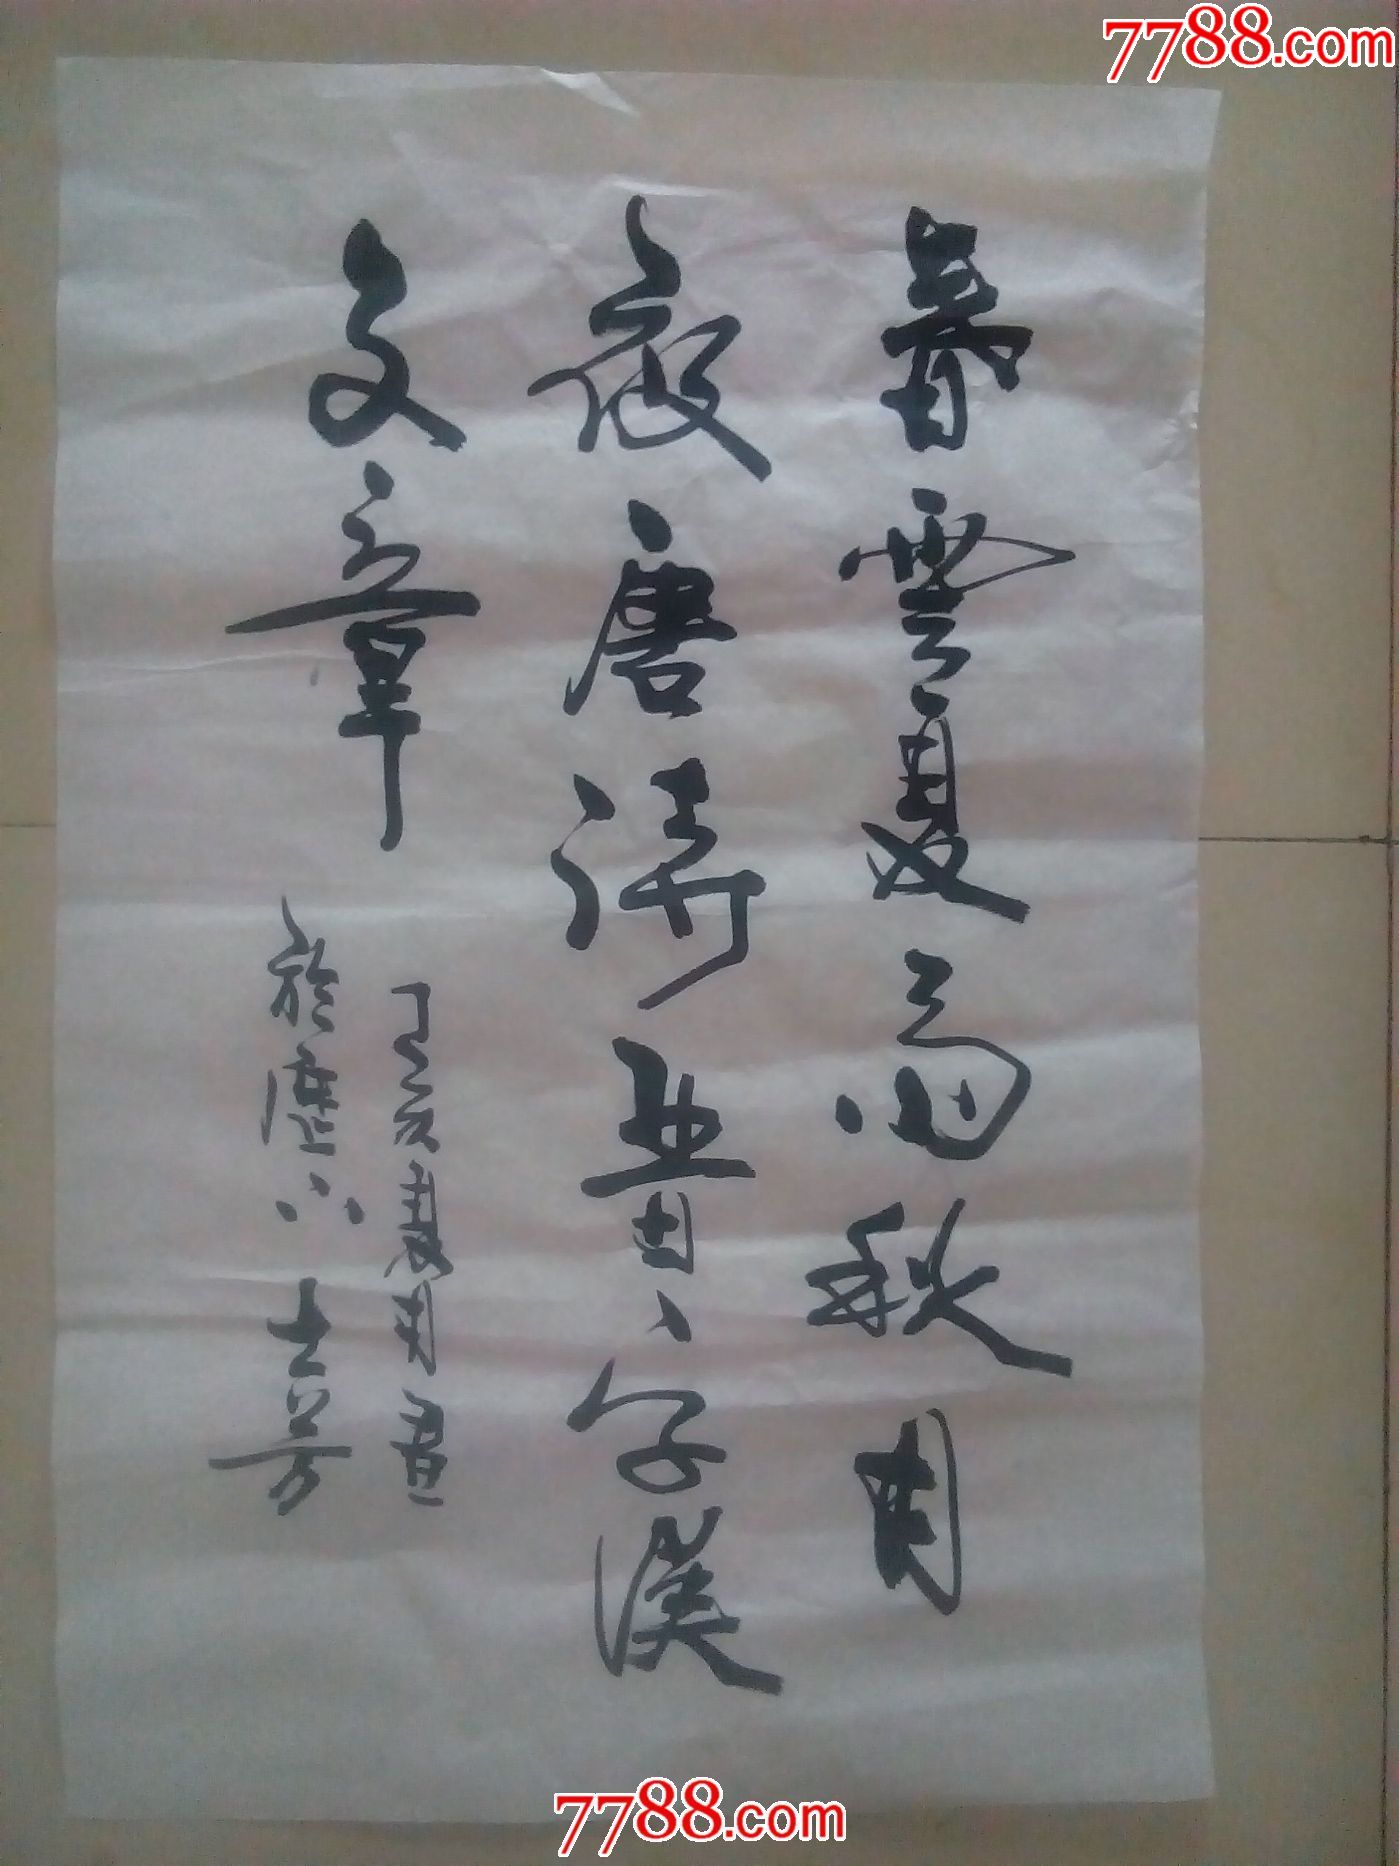 7788.com
春雲夏雨秋月
夜唐詩晋字漢
文章
丁亥夏月畫
於塵不士芳
7788.com